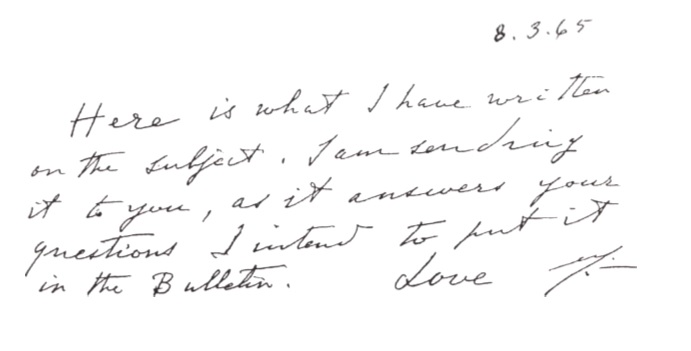 8.3.65
Here is what I have written
on the subject. I am sending
it to you, as it answers your
questions I intend to put it
in the Bulletin. Love